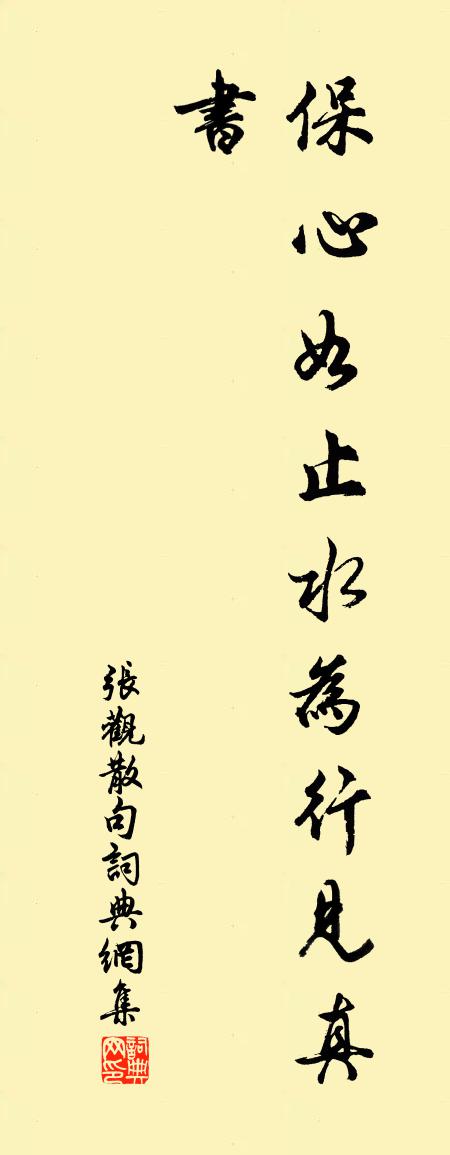 保心如止水為行見真
書
張觀散句詞典網集
詞典网印